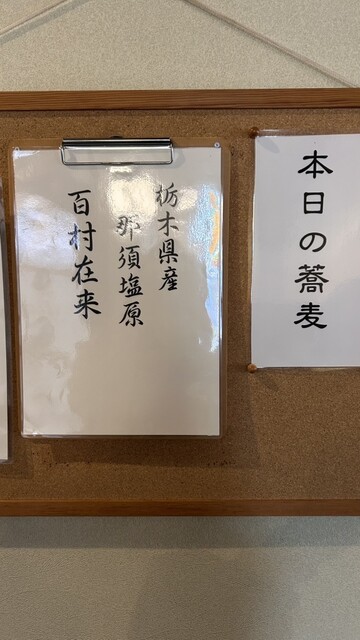 本日の蕎麦
栃木県産
那須塩原
百村在来